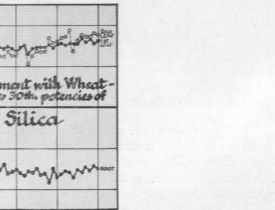 ment with Wheat-
30th. potencies of
Silica
ROOT